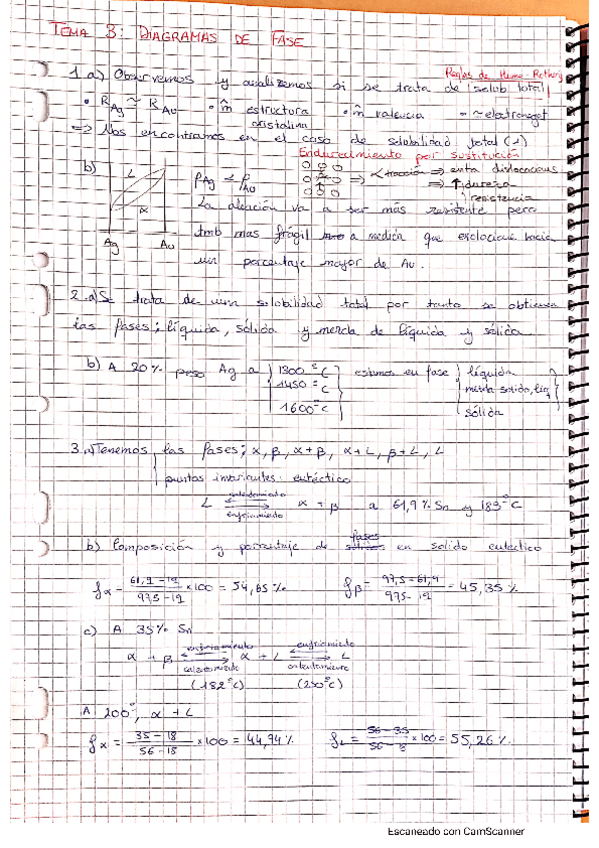 TEMA 3: DIAGRAMAS DE FASE
Reglas de Hume-Rothery
1.a) Observemos y analizemos si se trata de solub total
• R Ag ≃ R Au • m̂ estructura cristalina • m̂ valencia • ≃ electronegat
=> Nos encontramos en el caso de solubilidad total (1)
Endurecimiento por sustitución
b) L α Ag Au
ρAg < ρAu => tracción => evita dislocaciones
=> ↑ dureza
resistencia
La aleación va a ser más resistente pero
tmb mas frágil a medida que
un porcentaje mayor de Au.
2.a) Se trata de una solobilidad total por tanto se obtienen
las fases; líquida, sólida y mezcla de líquida y sólida
b) A 20% peso Ag a 1300°C estamos en fase líquida
1450°C mezcla solido, liq
1600°C sólida
3.a) Tenemos las fases; α, β, α+β, α+L, β+L, L
puntos invariantes: eutéctico
calentamiento
L ⇄ α + β a 61,9% Sn y 183°C
enfriamiento
b) Composición y porcentaje de fases en solido eutéctico
fα = 61,9-19 / 97,5-19 ×100 = 54,65% fβ = 97,5-61,9 / 97,5-19 = 45,35%
c) A 35% Sn
enfriamiento enfriamiento
α + β ⇄ α + L ⇄ L
calentamiento calentamiento
(182°C) (250°C)
A 200°, α + L
fα = 35-18 / 56-18 ×100 = 44,74% fL = 56-35 / 56-18 ×100 = 55,26%
Escaneado con CamScanner